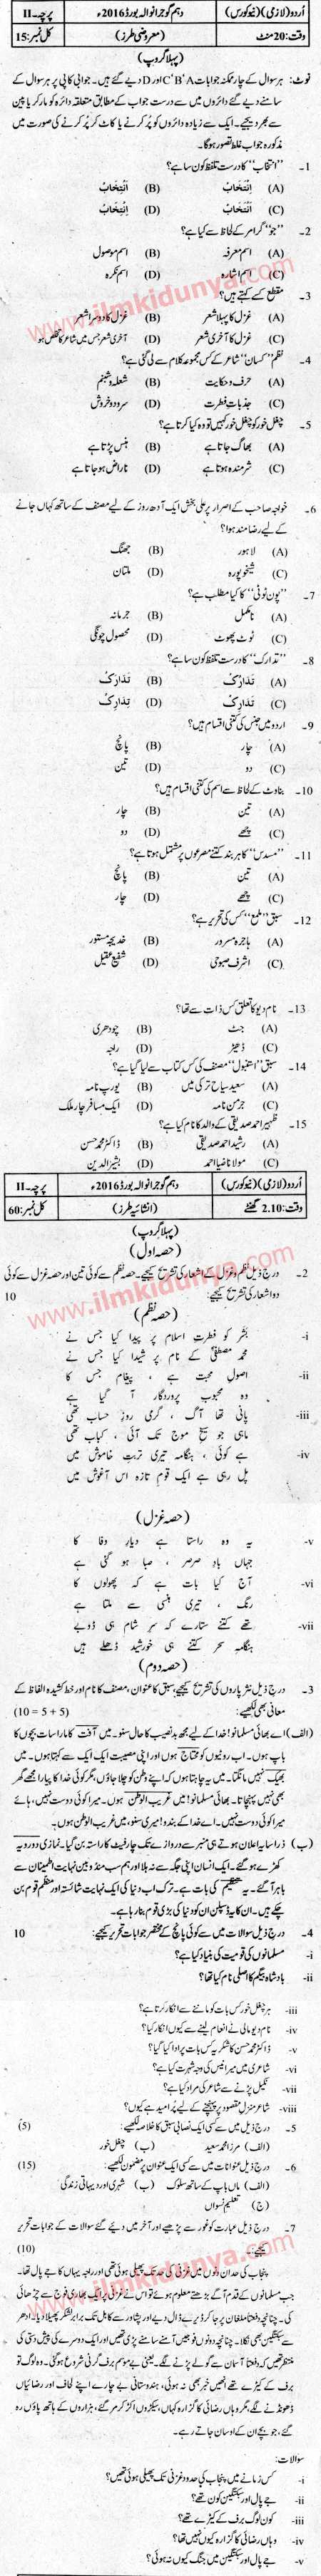 اُردو (لازمی) (نیو کورس) دہم گوجرانوالہ بورڈ 2016ء پرچہ۔ II
وقت: 20 منٹ (معروضی طرز) کل نمبر: 15
(پہلا گروپ)
نوٹ: ہر سوال کے چار ممکنہ جوابات A، B، C اور D دیے گئے ہیں۔ جوابی کاپی پر ہر سوال کے
سامنے دیے گئے دائروں میں سے درست جواب کے مطابق متعلقہ دائرہ کو مارکر یا پین
سے بھر دیجیے۔ ایک سے زیادہ دائروں کو پُر کرنے یا کاٹ کر پُر کرنے کی صورت میں
مذکورہ جواب غلط تصور ہوگا۔
1۔ "انتخاب" کا درست تلفظ کون سا ہے؟
2۔ "جو" گرامر کے لحاظ سے کیا ہے؟
(A) اسم معرفہ (B) اسم موصول
(C) اسم اشارہ (D) اسم نکرہ
3۔ مقطع کسے کہتے ہیں؟
(A) غزل کا پہلا شعر (B) غزل کا دوسرا شعر
(C) غزل کا آخری شعر (D) آخری شعر جس میں شاعر کا تخلص ہو
4۔ نظم "کسان" شاعر کے کس مجموعہ کلام سے لی گئی ہے؟
(A) حرف و حکایت (B) شعلہ و شبنم
(C) جذباتِ فطرت (D) سرود و خروش
5۔ چغل خور کو چغل خور کہیں تو وہ کیا کرتا ہے؟
(A) بھاگ جاتا ہے (B) ہنس پڑتا ہے
(C) شرمندہ ہوتا ہے (D) ناراض ہو جاتا ہے
6۔ خواجہ صاحب کے اصرار پر علی بخش ایک آدھ روز کے لیے مصنف کے ساتھ کہاں جانے
کے لیے رضا مند ہوا؟
(A) لاہور (B) جھنگ
(C) شیخوپورہ (D) ملتان
7۔ "پون ٹوٹی" کا کیا مطلب ہے؟
(A) نامکمل (B) جرمانہ
(C) ٹوٹ پھوٹ (D) محصول چونگی
8۔ "تدارک" کا درست تلفظ کون سا ہے؟
9۔ اردو میں جنس کی کتنی اقسام ہیں؟
(A) چار (B) پانچ
(C) دو (D) تین
10۔ بناوٹ کے لحاظ سے اسم کی کتنی اقسام ہیں؟
(A) تین (B) چار
(C) چھے (D) دو
11۔ "مسدس" کا ہر بند کتنے مصرعوں پر مشتمل ہوتا ہے؟
(A) تین (B) پانچ
(C) چھے (D) چار
12۔ سبق "ملمع" کس کی تحریر ہے؟
(A) ہاجرہ مسرور (B) خدیجہ مستور
(C) اشرف صبوحی (D) شفیع عقیل
13۔ نام دیو کا تعلق کس ذات سے تھا؟
(A) جٹ (B) چودھری
(C) ڈھیڑ (D) راجہ
14۔ سبق "استنبول" مصنف کی کس کتاب سے لیا گیا ہے؟
(A) سعید سیاح ترکی میں (B) یورپ نامہ
(C) جرمن نامہ (D) ایک مسافر چار ملک
15۔ ظہیر احمد صدیقی کے والد کا نام کیا ہے؟
(A) رشید احمد صدیقی (B) ڈاکٹر محمد حسن
(C) مولانا ضیا احمد (D) بشیر الدین
اُردو (لازمی) (نیو کورس) دہم گوجرانوالہ بورڈ 2016ء پرچہ۔ II
وقت: 2.10 گھنٹے (انشائیہ طرز) کل نمبر: 60
(پہلا گروپ)
(حصہ اول)
2۔ درج ذیل نظم و غزل کے اشعار کی تشریح کیجیے۔ حصہ نظم سے کوئی تین اور حصہ غزل سے کوئی
دو اشعار کی تشریح کیجیے: 10
(حصہ نظم)
i- بشر کو فطرتِ اسلام پر پیدا کیا جس نے
محمد مصطفیٰؐ کے نام پر شیدا کیا جس نے
ii- اصولِ محبت ہے ، پیغام جس کا
وہ محبوب پروردگار آ گیا ہے
iii- پانی تھا آگ ، گرمی روزِ حساب تھی
ماہی جو سیخ موج تک آئی ، کباب تھی
iv- ہے کوئی ، ہنگامہ تیری تربت خاموش میں
پل رہی ہے ایک قوم تازہ اس آغوش میں
(حصہ غزل)
v- یہ وہ راستا ہے دیارِ وفا کا
جہاں بادِ صرصر ، صبا ہو گئی ہے
vi- آج کیا بات ہے کہ پھولوں کا
رنگ ، تیری ہنسی سے ملتا ہے
vii- تھے کتنے ستارے کہ سرِ شام ہی ڈوبے
ہنگامِ سحر کتنے ہی خورشید ڈھلے ہیں
(حصہ دوم)
3۔ درج ذیل نثر پاروں کی تشریح کیجیے۔ سبق کا عنوان، مصنف کا نام اور خط کشیدہ الفاظ کے
معانی بھی لکھیے: (10 = 5 + 5)
(الف) اے بھائی مسلمانو! خدا کے لیے مجھ بدنصیب کا حال سنو۔ میں آفت کا مارا سات بچوں کا
باپ ہوں۔ اب روٹیوں کو محتاج ہوں اور اپنی مصیبت ایک ایک سے کہتا ہوں۔ میں
بھیک نہیں مانگتا۔ میں یہ چاہتا ہوں کہ اپنے وطن کو چلا جاؤں، مگر کوئی خدا کا پیارا مجھے گھر
بھی نہیں پہنچاتا۔ بھائی مسلمانو! میں غریب الوطن ہوں۔ میرا کوئی دوست نہیں، ہائے
میرا کوئی دوست نہیں۔ اے خدا کے بندو! میری سنو، میں غریب الوطن ہوں۔
(ب) ذرا سا یہ اعلان ہوتے ہی منبر سے دروازے تک چار فٹ کا راستہ بن گیا۔ نمازی دو رویہ
کھڑے ہو گئے۔ ایک انسان اپنی جگہ سے نہ ہلا اور ہم سب مندوبین نہایت اطمینان سے
باہر آ گئے۔ یہ تنظیم کی بات ہے۔ ترک اب دنیا کی ایک نہایت شائستہ اور منظم قوم بن
چکے ہیں۔ ان کا یہ ڈسپلن ان کو دنیا کی بڑی قوم بنا رہا ہے۔
4۔ درج ذیل سوالات میں سے کوئی پانچ کے مختصر جوابات تحریر کیجیے: 10
i- مسلمانوں کی قومیت کی بنیاد کیا ہے؟
ii- بادشاہ بیگم کا اصلی نام کیا تھا؟
iii- ہر چغل خور کس بات کو ماننے سے انکار کرتا ہے؟
iv- نام دیو مالی نے انعام لینے سے کیوں انکار کیا؟
v- ڈاکٹر محمد حسن کا شکریہ کس بات پر ادا کیا گیا؟
vi- شاعری میں میر انیس کی وجہ شہرت کیا ہے؟
vii- نکیل پڑنے سے شاعر کی مراد کیا ہے؟
viii- شاعر منزل مقصود پر پہنچنے کے لیے پُر امید ہے کیوں؟
5۔ درج ذیل میں سے کسی ایک نصابی سبق کا خلاصہ لکھیے: (5)
(الف) مرزا محمد سعید (ب) چغل خور
6۔ درج ذیل عنوانات میں سے کسی ایک عنوان پر مضمون لکھیے: (15)
(الف) ماں باپ کے ساتھ سلوک (ب) شہری اور دیہاتی زندگی
(ج) تعلیم نسواں
7۔ درج ذیل عبارت کو غور سے پڑھیے اور آخر میں دیئے گئے سوالات کے جوابات تحریر
کیجیے۔: (10)
پنجاب کی حد ان دنوں میں غزنی کی حد تک پھیلی ہوئی تھی اور راجہ یہاں کا جے پال تھا۔
جب مسلمانوں کے قدم آگے بڑھتے معلوم ہوئے تو اس نے غزنی پر ایک بھاری فوج سے چڑھائی
کی۔ چنانچہ دفعتاً ملغان پر جا کر ڈیرے ڈال دیے اور پشاور سے کابل تک برابر لشکر پھیلا دیا۔ ادھر
سے سبکتگین بھی نکلا۔ چنانچہ دونوں فوجیں آمنے سامنے پڑی تھیں اور ایک دوسرے کی پیش دستی کی
منتظر تھیں کہ دفعتاً آسمان سے گولے پڑنے لگے۔ یعنی بے موسم برف گرنی شروع ہو گئی۔ وہ لوگ تو
برف کے کیڑے تھے انھیں خبر بھی نہ ہوئی، ہندوستانی بے چارے اپنے لحاف اور رضائیاں
ڈھونڈنے لگے، مگر وہاں رضائی کا گزارہ کہاں، سیکڑوں اکڑ کر مر گئے، ہزاروں کے ہاتھ پاؤں رہ
گئے، جو بچے ان کے اوسان جاتے رہے۔
سوالات:
i- کس زمانے میں پنجاب کی حدود غزنی تک پھیلی ہوئی تھیں؟
ii- جے پال اور سبکتگین کون تھے؟
iii- کون لوگ برف کے کیڑے تھے؟
iv- وہاں رضائی کا گزارہ کیوں نہیں تھا؟
v- جے پال اور سبکتگین میں جنگ کیوں نہ ہوئی؟
www.ilmkidunya.com